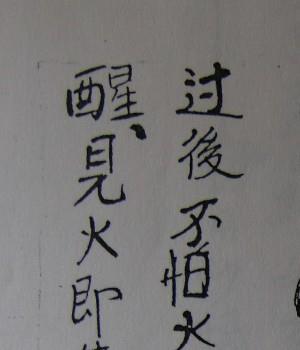 过後不怕火
醒、見火即